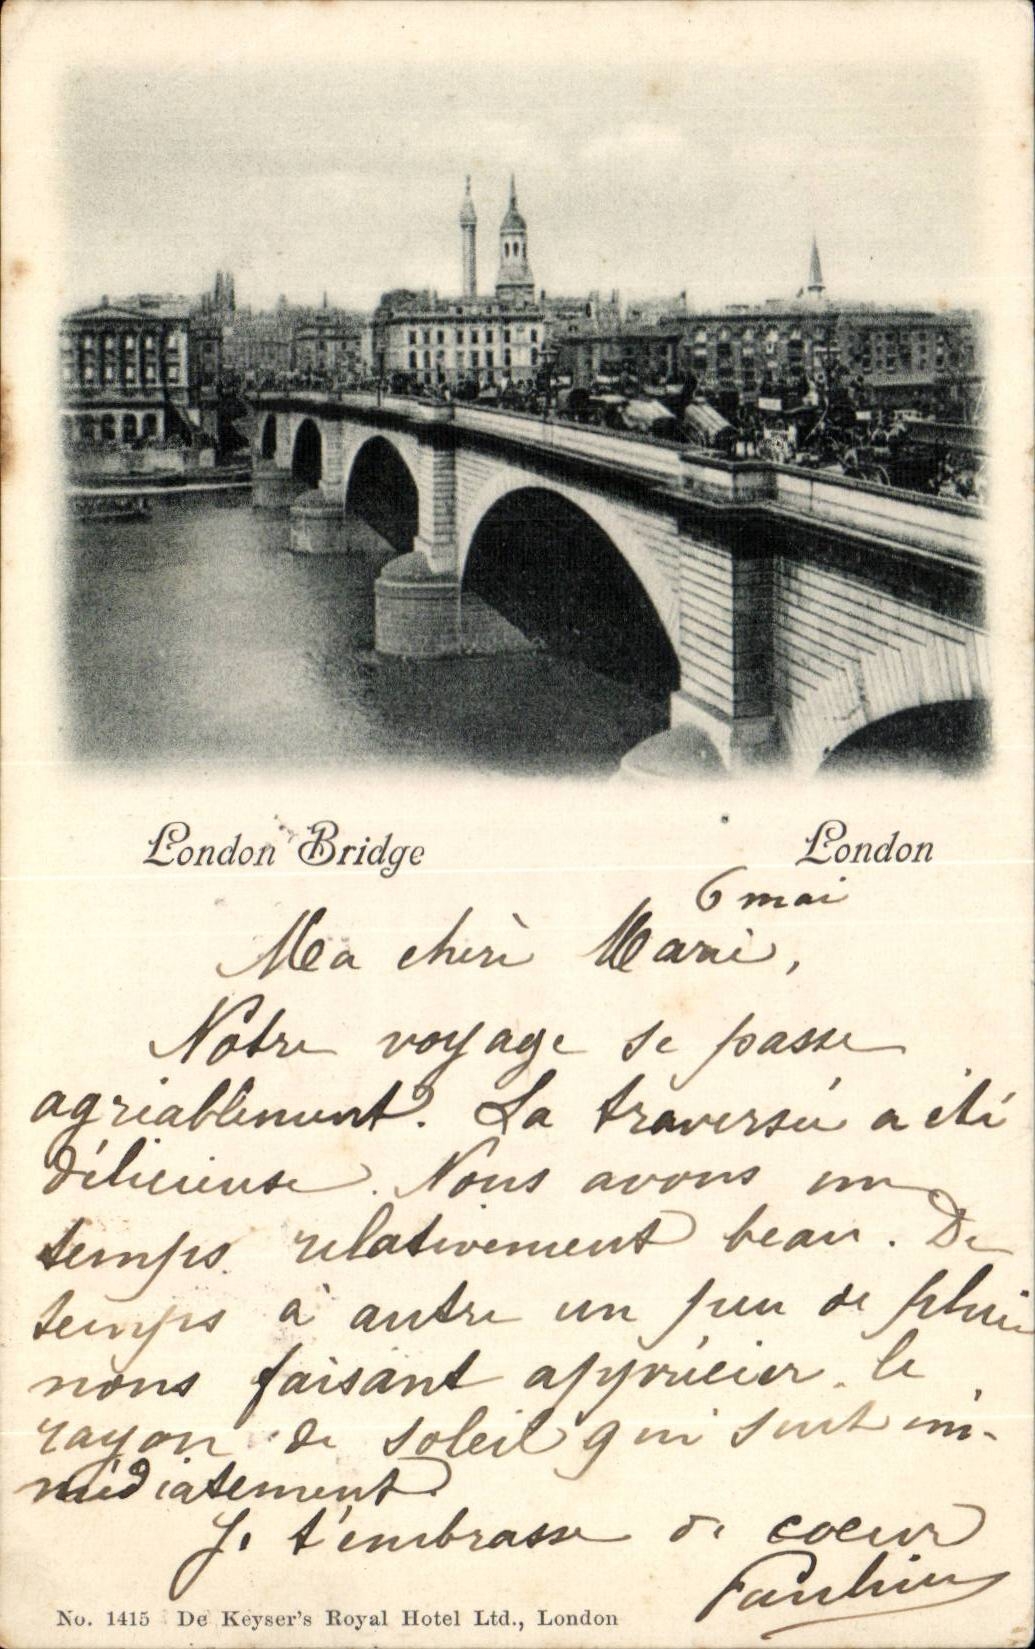 London Bridge London
6 mai
Ma chérie Marie,
Notre voyage se passe
agréablement. La traversée a été
délicieuse. Nous avons un
temps relativement beau. De
temps à autre un peu de pluie
nous faisant apprécier le
rayon de soleil qui suit im-
médiatement.
Je t'embrasse de coeur
Pauline
No. 1415 De Keyser's Royal Hotel Ltd., London